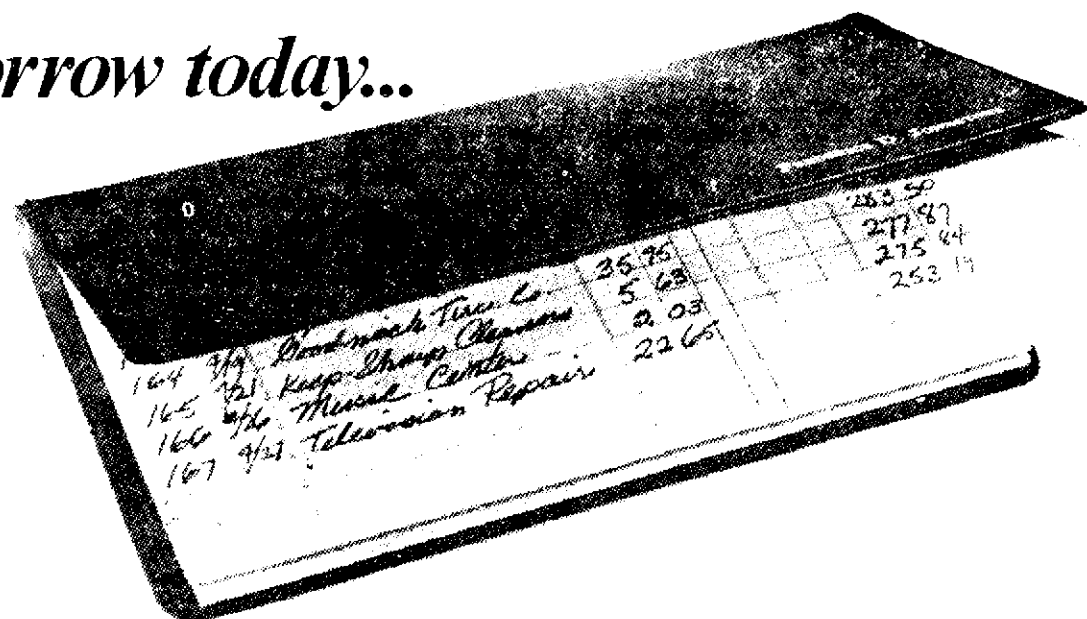 orrow today...
164 9/19 Tire Co. 35 95 283 50
165 9/21 Keep Sharp Cleaners 5 63 277 87
166 9/26 Music Center 2 03 275 84
167 9/27 Television Repair 22 65 253 19